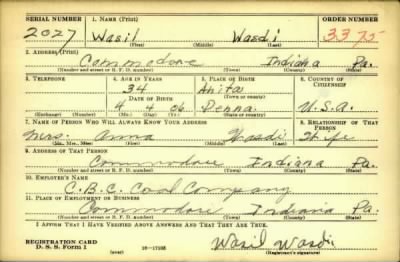 SERIAL NUMBER 1. NAME (Print) ORDER NUMBER
2027 Wasil Wasdi 3375
(First) (Middle) (Last)
2. ADDRESS (Print)
Commodore Indiana Pa.
(Number and street or R. F. D. number) (Town) (County) (State)
3. TELEPHONE 4. AGE IN YEARS 5. PLACE OF BIRTH 6. COUNTRY OF CITIZENSHIP
34 Anita
DATE OF BIRTH (Town or county)
4 4 06 Penna. U.S.A.
(Exchange) (Number) (Mo.) (Day) (Yr.) (State or country)
7. NAME OF PERSON WHO WILL ALWAYS KNOW YOUR ADDRESS 8. RELATIONSHIP OF THAT PERSON
Mrs. Anna Wasdi Wife
(Mr., Mrs., Miss) (First) (Middle) (Last)
9. ADDRESS OF THAT PERSON
Commodore Indiana Pa.
(Number and street or R. F. D. number) (Town) (County) (State)
10. EMPLOYER'S NAME
C.B.C. Coal Company
11. PLACE OF EMPLOYMENT OR BUSINESS
Commodore Indiana Pa.
(Number and street or R. F. D. number) (Town) (County) (State)
I AFFIRM THAT I HAVE VERIFIED ABOVE ANSWERS AND THAT THEY ARE TRUE.
REGISTRATION CARD
D. S. S. Form 1 (over) Wasil Wasdi
(Registrant's signature)